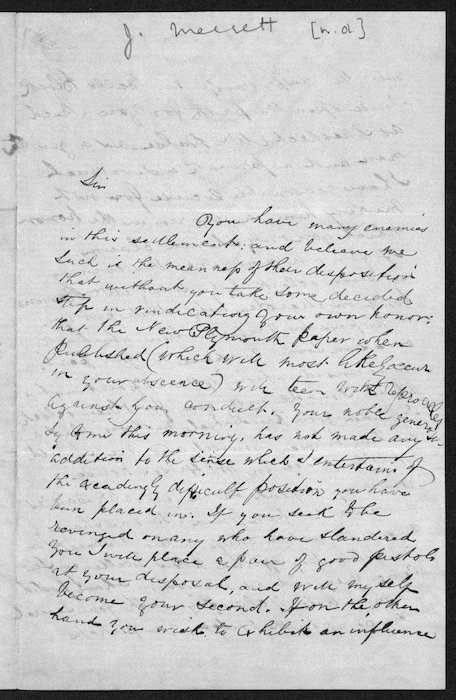 J. Merrett [n.d]
Sir
You have many enemies
in this settlement: and believe me
such is the meanness of their disposition
that without you take some decided
step in vindicating your own honor;
that the New Plymouth paper when
published (which will most likely occur
in your abscence) will teem with reproaches
against your conduct. Your noble generosi-
ty to me this morning, has not made any
addition to the sense which I entertain of
the difficult position you have
been placed in. If you seek to be
revenged on any who have slandered
you I will place a pair of good pistols
at your disposal, and will myself
become your second. If on the other
hand you wish to exhibit an influence